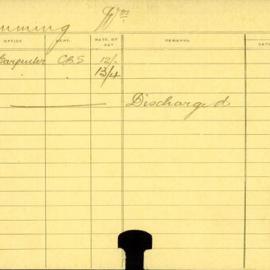 mming Wm
OFFICE DEPT. RATE OF PAY REMARKS DATE
Carpenter CBS 12/-
13/4
Discharged